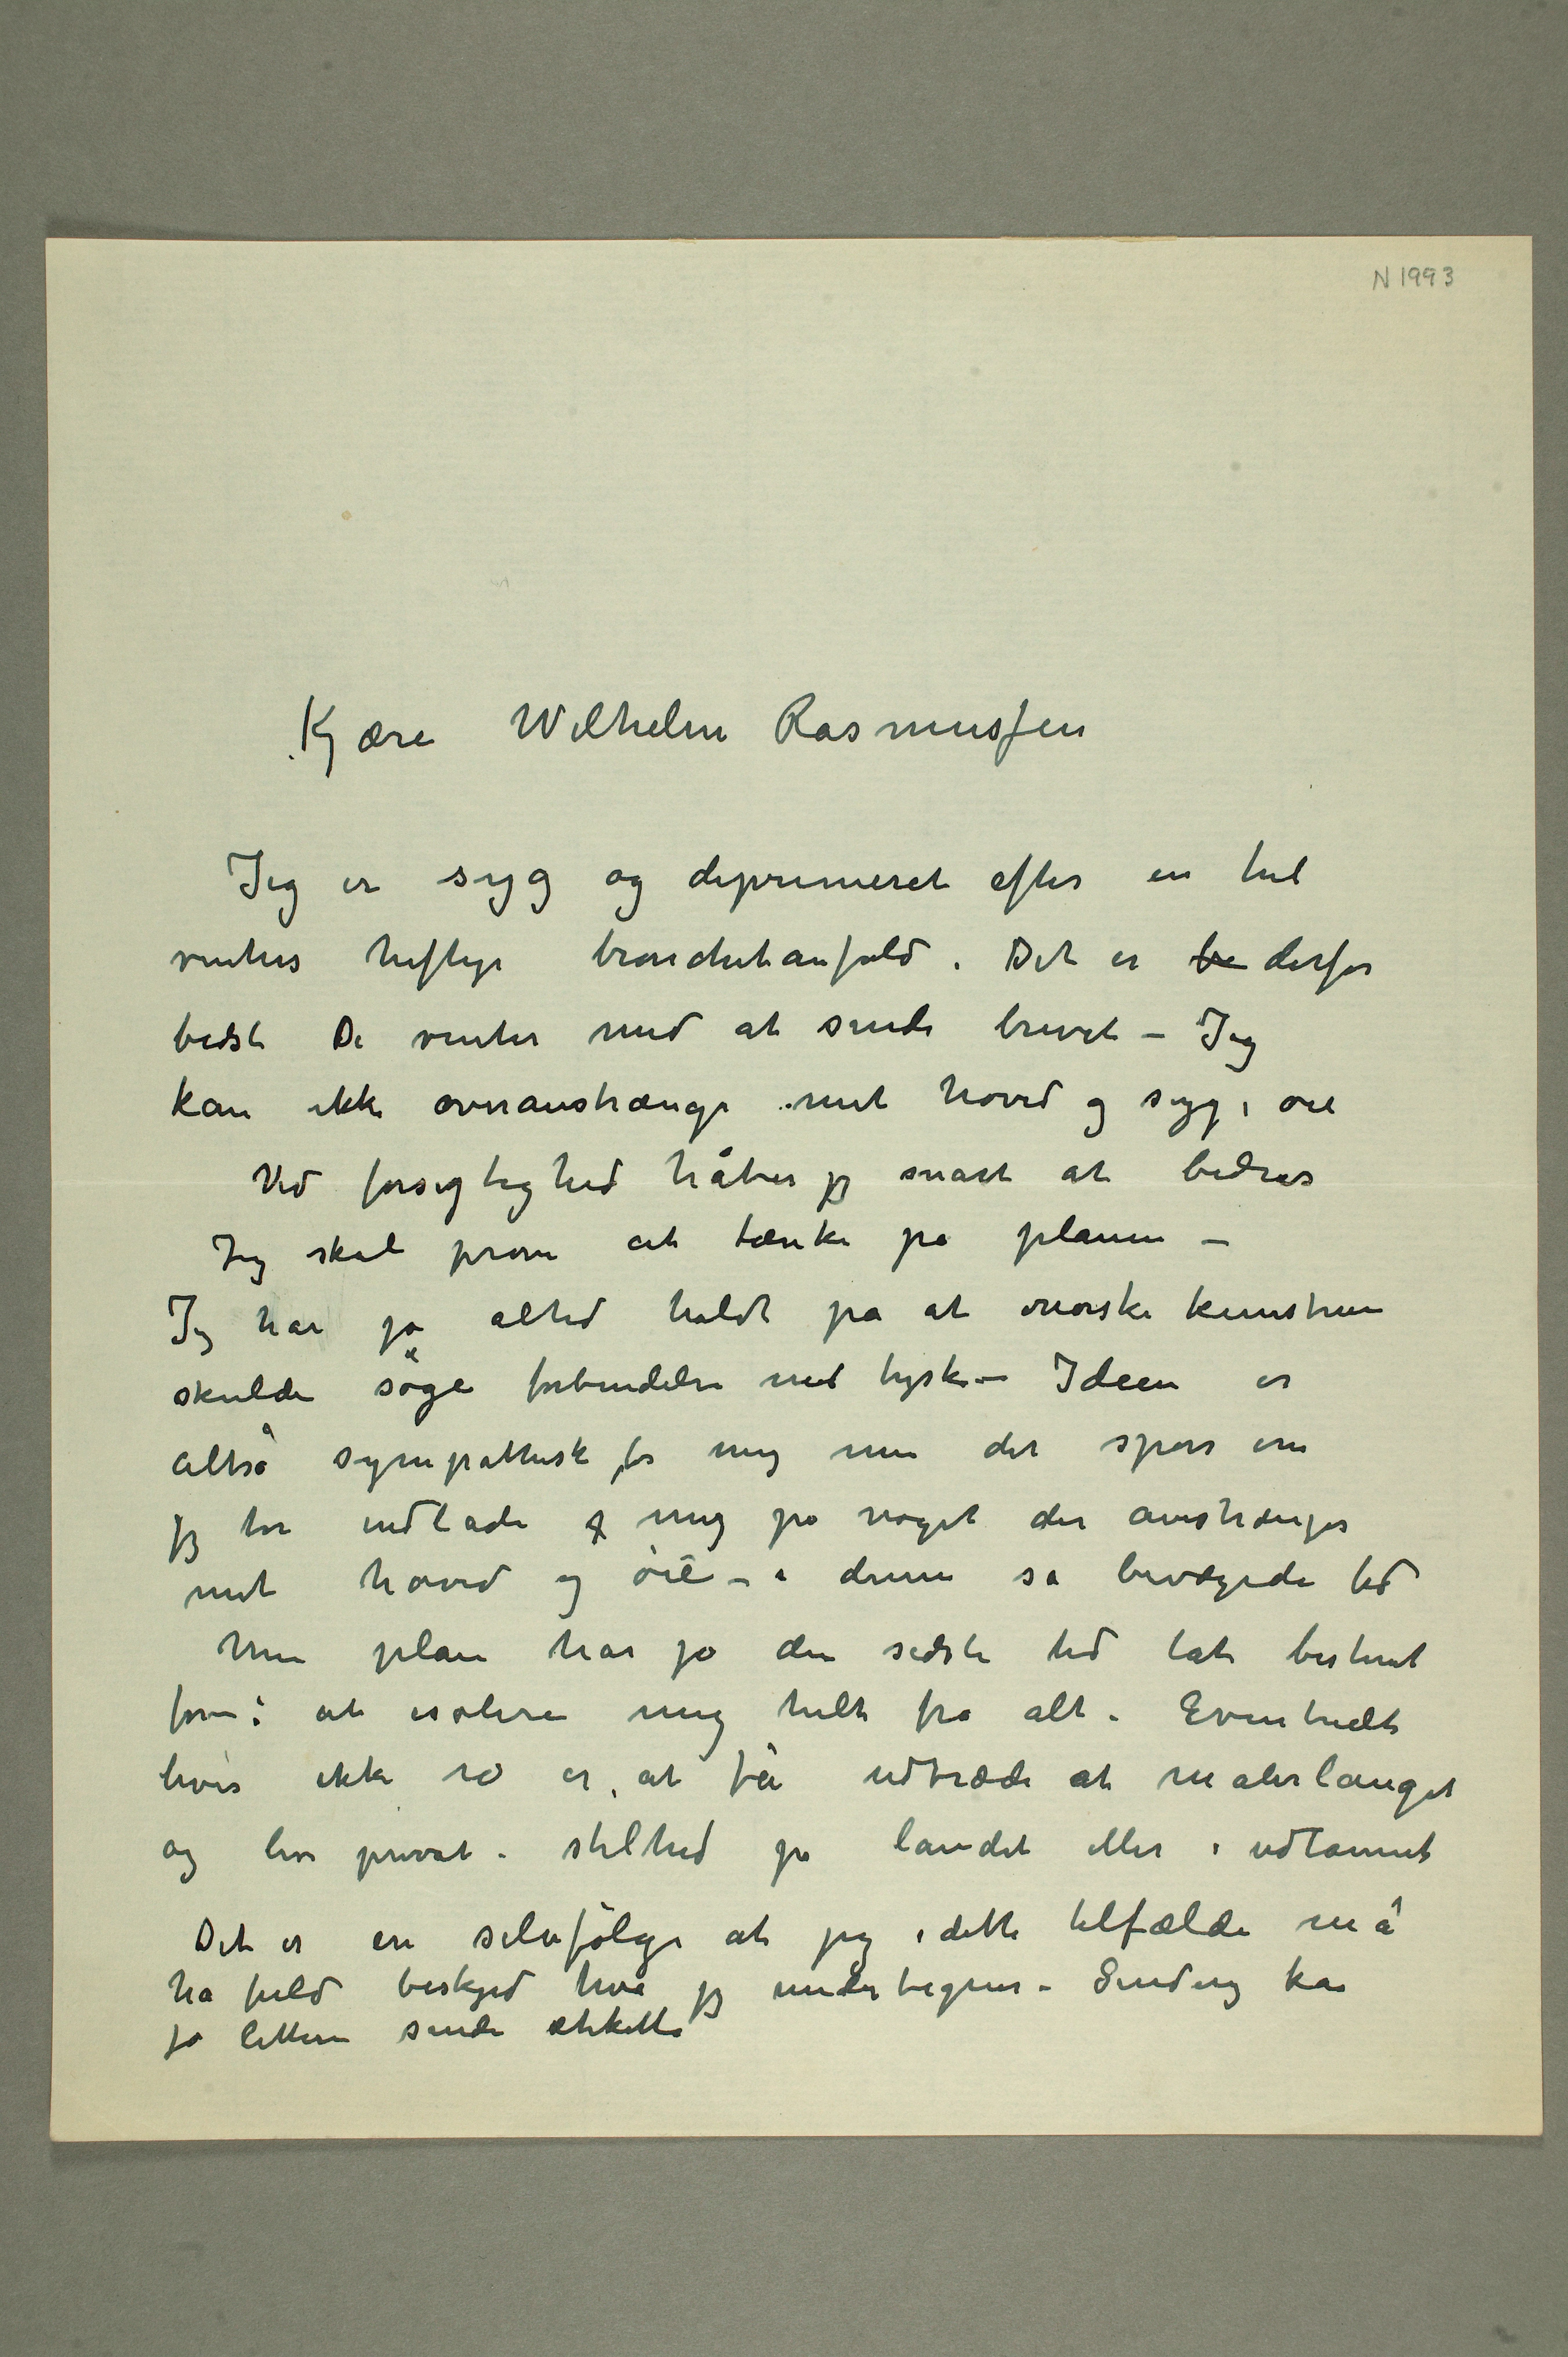 N 1993
Kjære Wilhelm Rasmussen
Jeg er syg og deprimeret efter en hel
vinters heftige bronchitanfald. Det er be derfor
bedst De venter med at sende brevet – Jeg
kan ikke overanstrænge mit hoved og syge øie
Ved forsigtighed håber jeg snart at bedres
Jeg skal prøve at tænke på planen –
Jeg har jo altid holdt på at norske kunstnere
skulde söge forbindelse med tyske – Ideen er
altså sympathisk for mig men det spørs om
jeg tør indlade mig på noget der anstrænger
mit hoved og öie – i denne så bevægede tid
Min plan har jo den sidste tid tat bestemt
form: at isolere mig helt fra alt. Eventuelt
hvis ikke ro er at få udtræde at malerlauget
og leve privat. stilhed på landet eller i udlannet
Det er en selvfölge at jeg i dette tilfælde må
ha fuld beskjed hva jeg undertegner – Sinding kan
jo lettere sende etikette